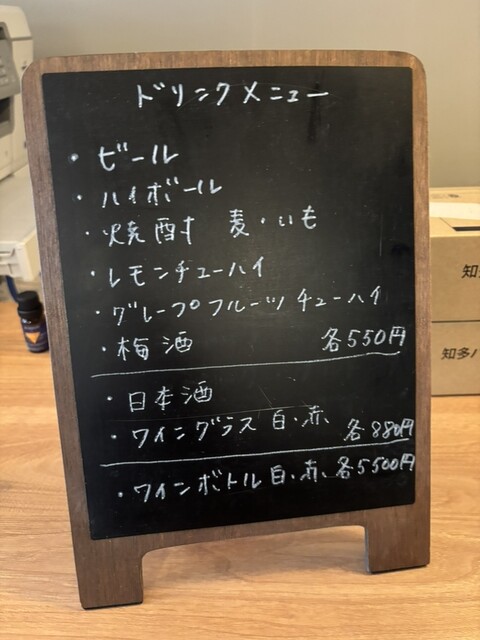 ドリンクメニュー
・ビール
・ハイボール
・焼酎 麦・いも
・レモンチューハイ
・グレープフルーツチューハイ
・梅酒 各550円
・日本酒
・ワイングラス 白・赤 各880円
・ワインボトル 白・赤 各5500円
知
知多ハ